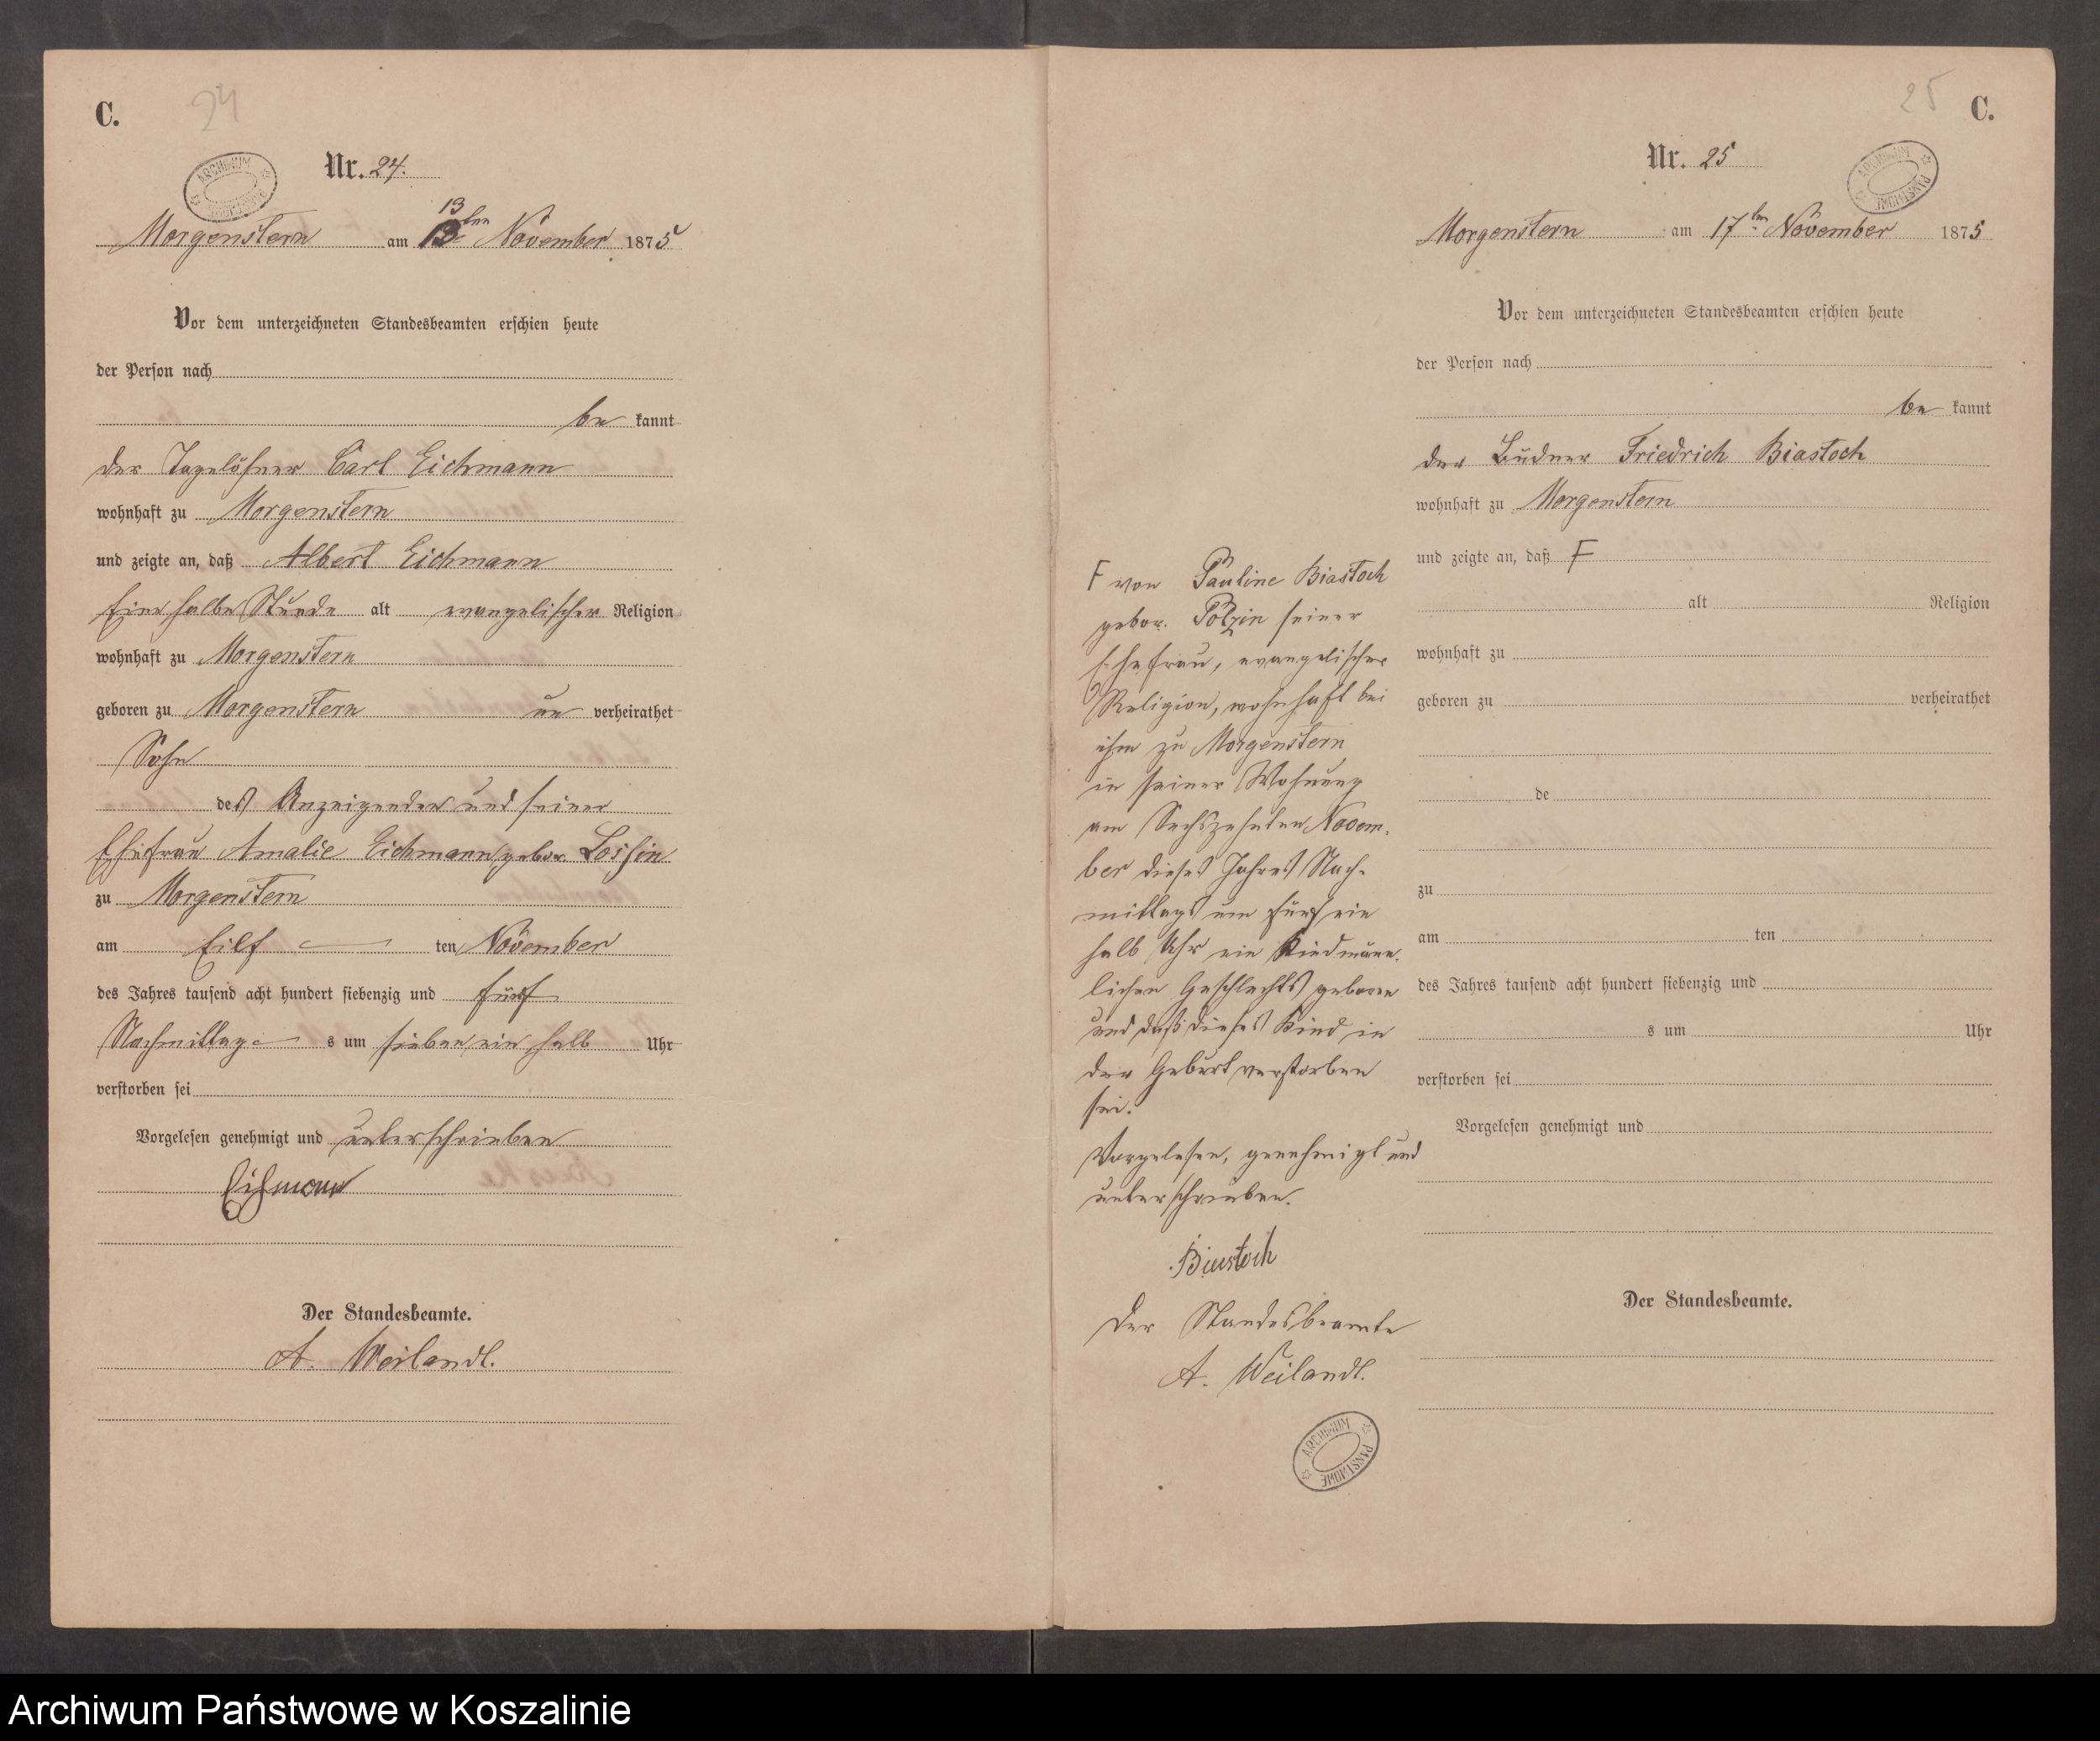 C.
24
Nr. 24.
ARCHIWUM PAŃSTWOWE
13
Morgenstern am 13ten November 1875
Vor dem unterzeichneten Standesbeamten erschien heute
der Person nach
be kannt
der Tagelöhner Carl Eichmann
wohnhaft zu Morgenstern
und zeigte an, daß Albert Eichmann
Eine halbe Stunde alt evangelischer Religion
wohnhaft zu Morgenstern
geboren zu Morgenstern un verheirathet
Sohn
des Anzeigenden und seiner
Ehefrau Amalie Eichmann gebor. Lossin
zu Morgenstern
am Eilf ten November
des Jahres tausend acht hundert siebenzig und fünf
Nachmittag s um sieben ein halb Uhr
verstorben sei
Vorgelesen genehmigt und unterschrieben
Eichmann
Der Standesbeamte.
A. Weilandt.
25
C.
Nr. 25
ARCHIWUM PAŃSTWOWE
Morgenstern am 17ten November 1875
Vor dem unterzeichneten Standesbeamten erschien heute
der Person nach
be kannt
der Büdner Friedrich Biastoch
wohnhaft zu Morgenstern
und zeigte an, daß F
alt Religion
wohnhaft zu
geboren zu verheirathet
de
zu
am ten
des Jahres tausend acht hundert siebenzig und
s um Uhr
verstorben sei
Vorgelesen genehmigt und
Der Standesbeamte.
F von Pauline Biastoch
gebor. Polzin seiner
Ehefrau, evangelischer
Religion, wohnhaft bei
ihm zu Morgenstern
in seiner Wohnung
am Sechszehnten Novem-
ber dieses Jahres Nach-
mittags um fünf ein
halb Uhr ein Kind männ-
lichen Geschlechts geboren
und daß dieses Kind in
der Geburt verstorben
sei.
Vorgelesen, genehmigt und
unterschrieben.
Biastoch
Der Standesbeamte
A. Weilandt.
ARCHIWUM PAŃSTWOWE
Archiwum Państwowe w Koszalinie